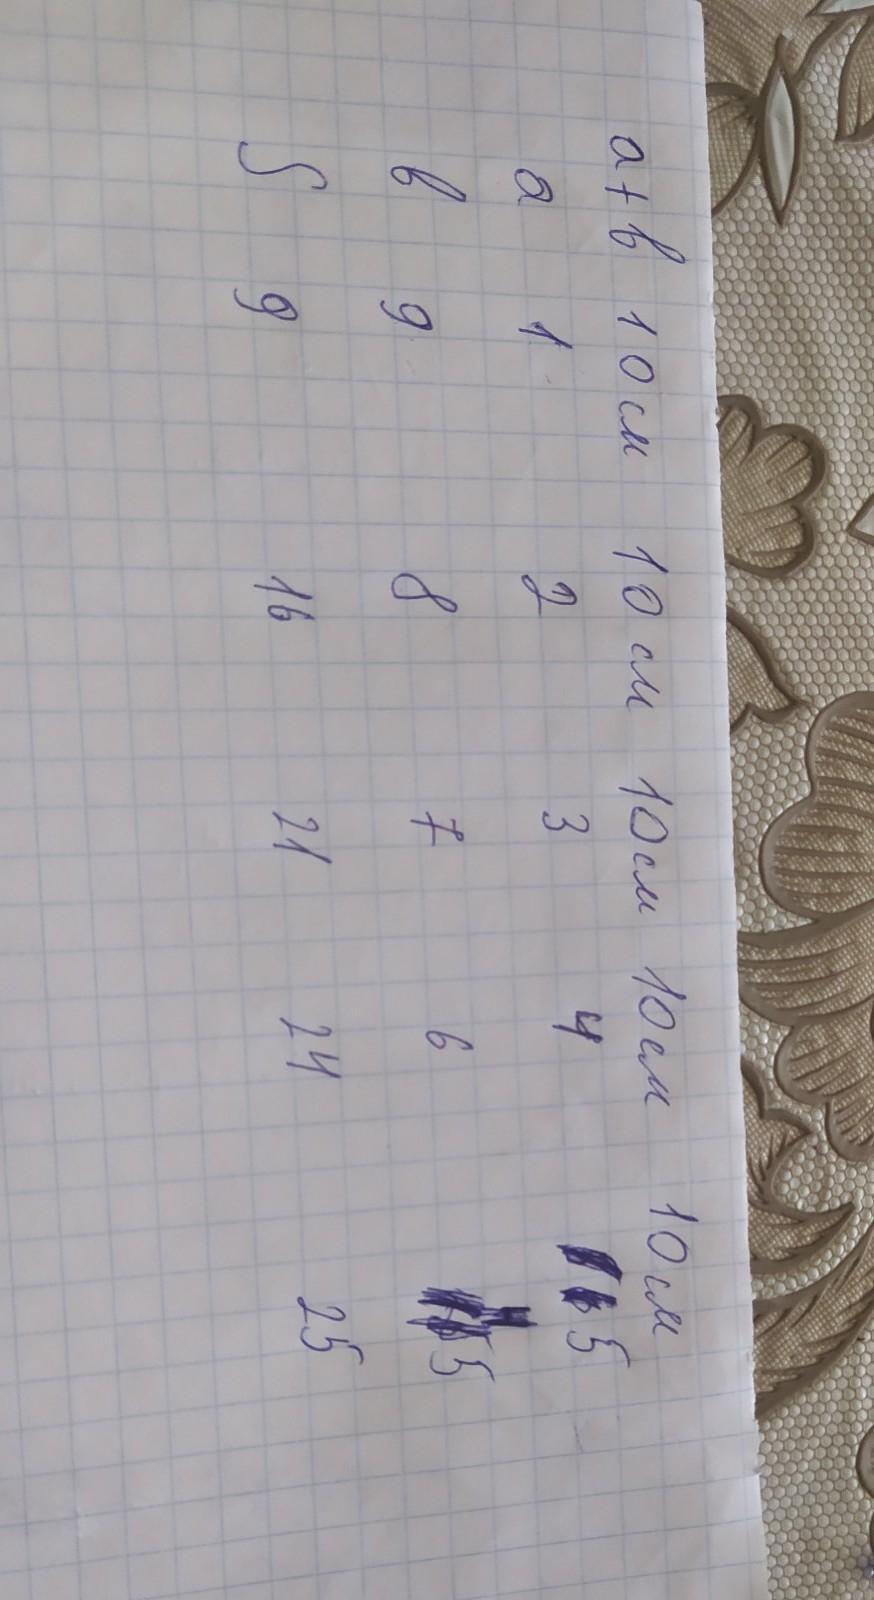 а+в 10см 10см 10см 10см 10см
а 1 2 3 4 5
в 9 8 7 6 5
S 9 16 21 24 25